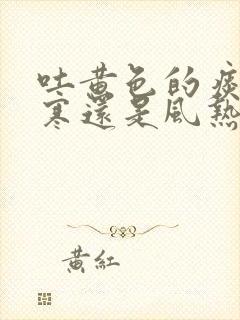 吐黃色的痰
寒還是風熱
黃紅